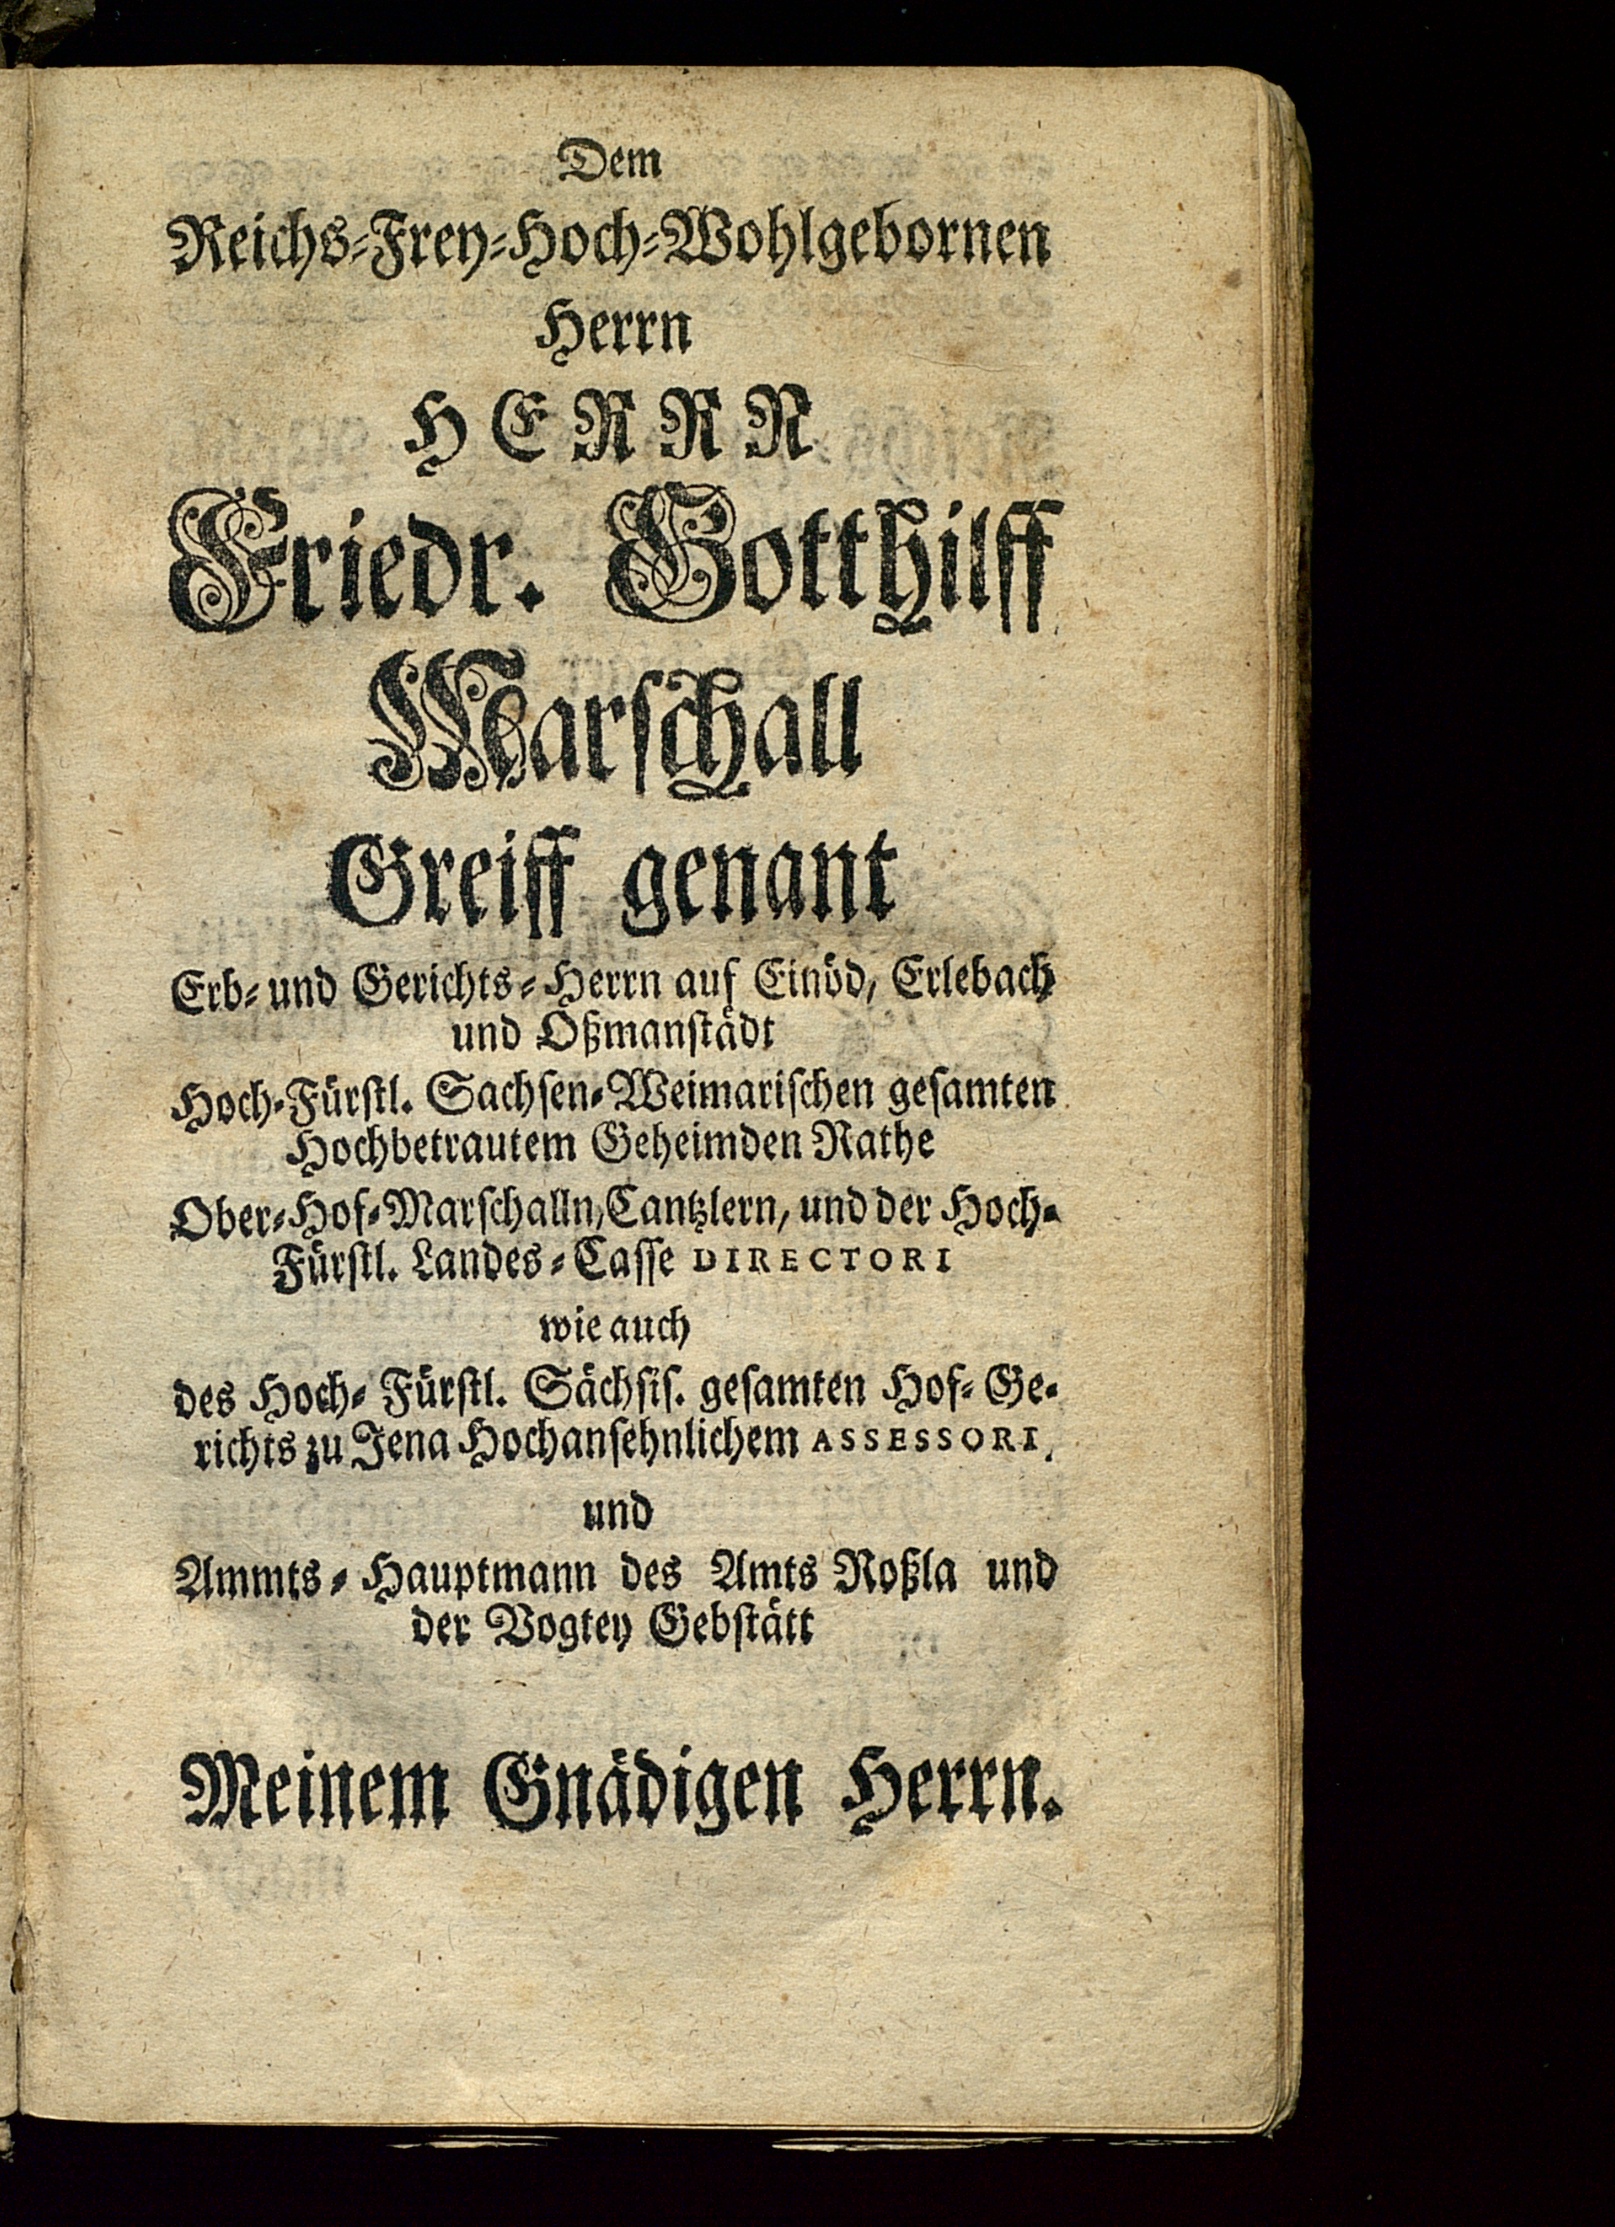 Dem
Reichs-Frey-Hoch-Wohlgebornen
Herrn
HERRN
Friedr. Gotthilff
Marſchall
Greiff genant
Erb- und Gerichts-Herrn auf Einöd, Erlebach
und Oßmanſtädt
Hoch-Fürſtl. Sachſen-Weimariſchen geſamten
Hochbetrautem Geheimden Rathe
Ober-Hof-Marſchalln, Cantzlern, und der Hoch-
Fürſtl. Landes-Caſſe DIRECTORI
wie auch
des Hoch-Fürſtl. Sächſiſ. geſamten Hof-Ge-
richts zu Jena Hochanſehnlichem ASSESSORI.
und
Ammts-Hauptmann des Amts Roßla und
der Vogtey Gebſtätt
Meinem Gnädigen Herrn.